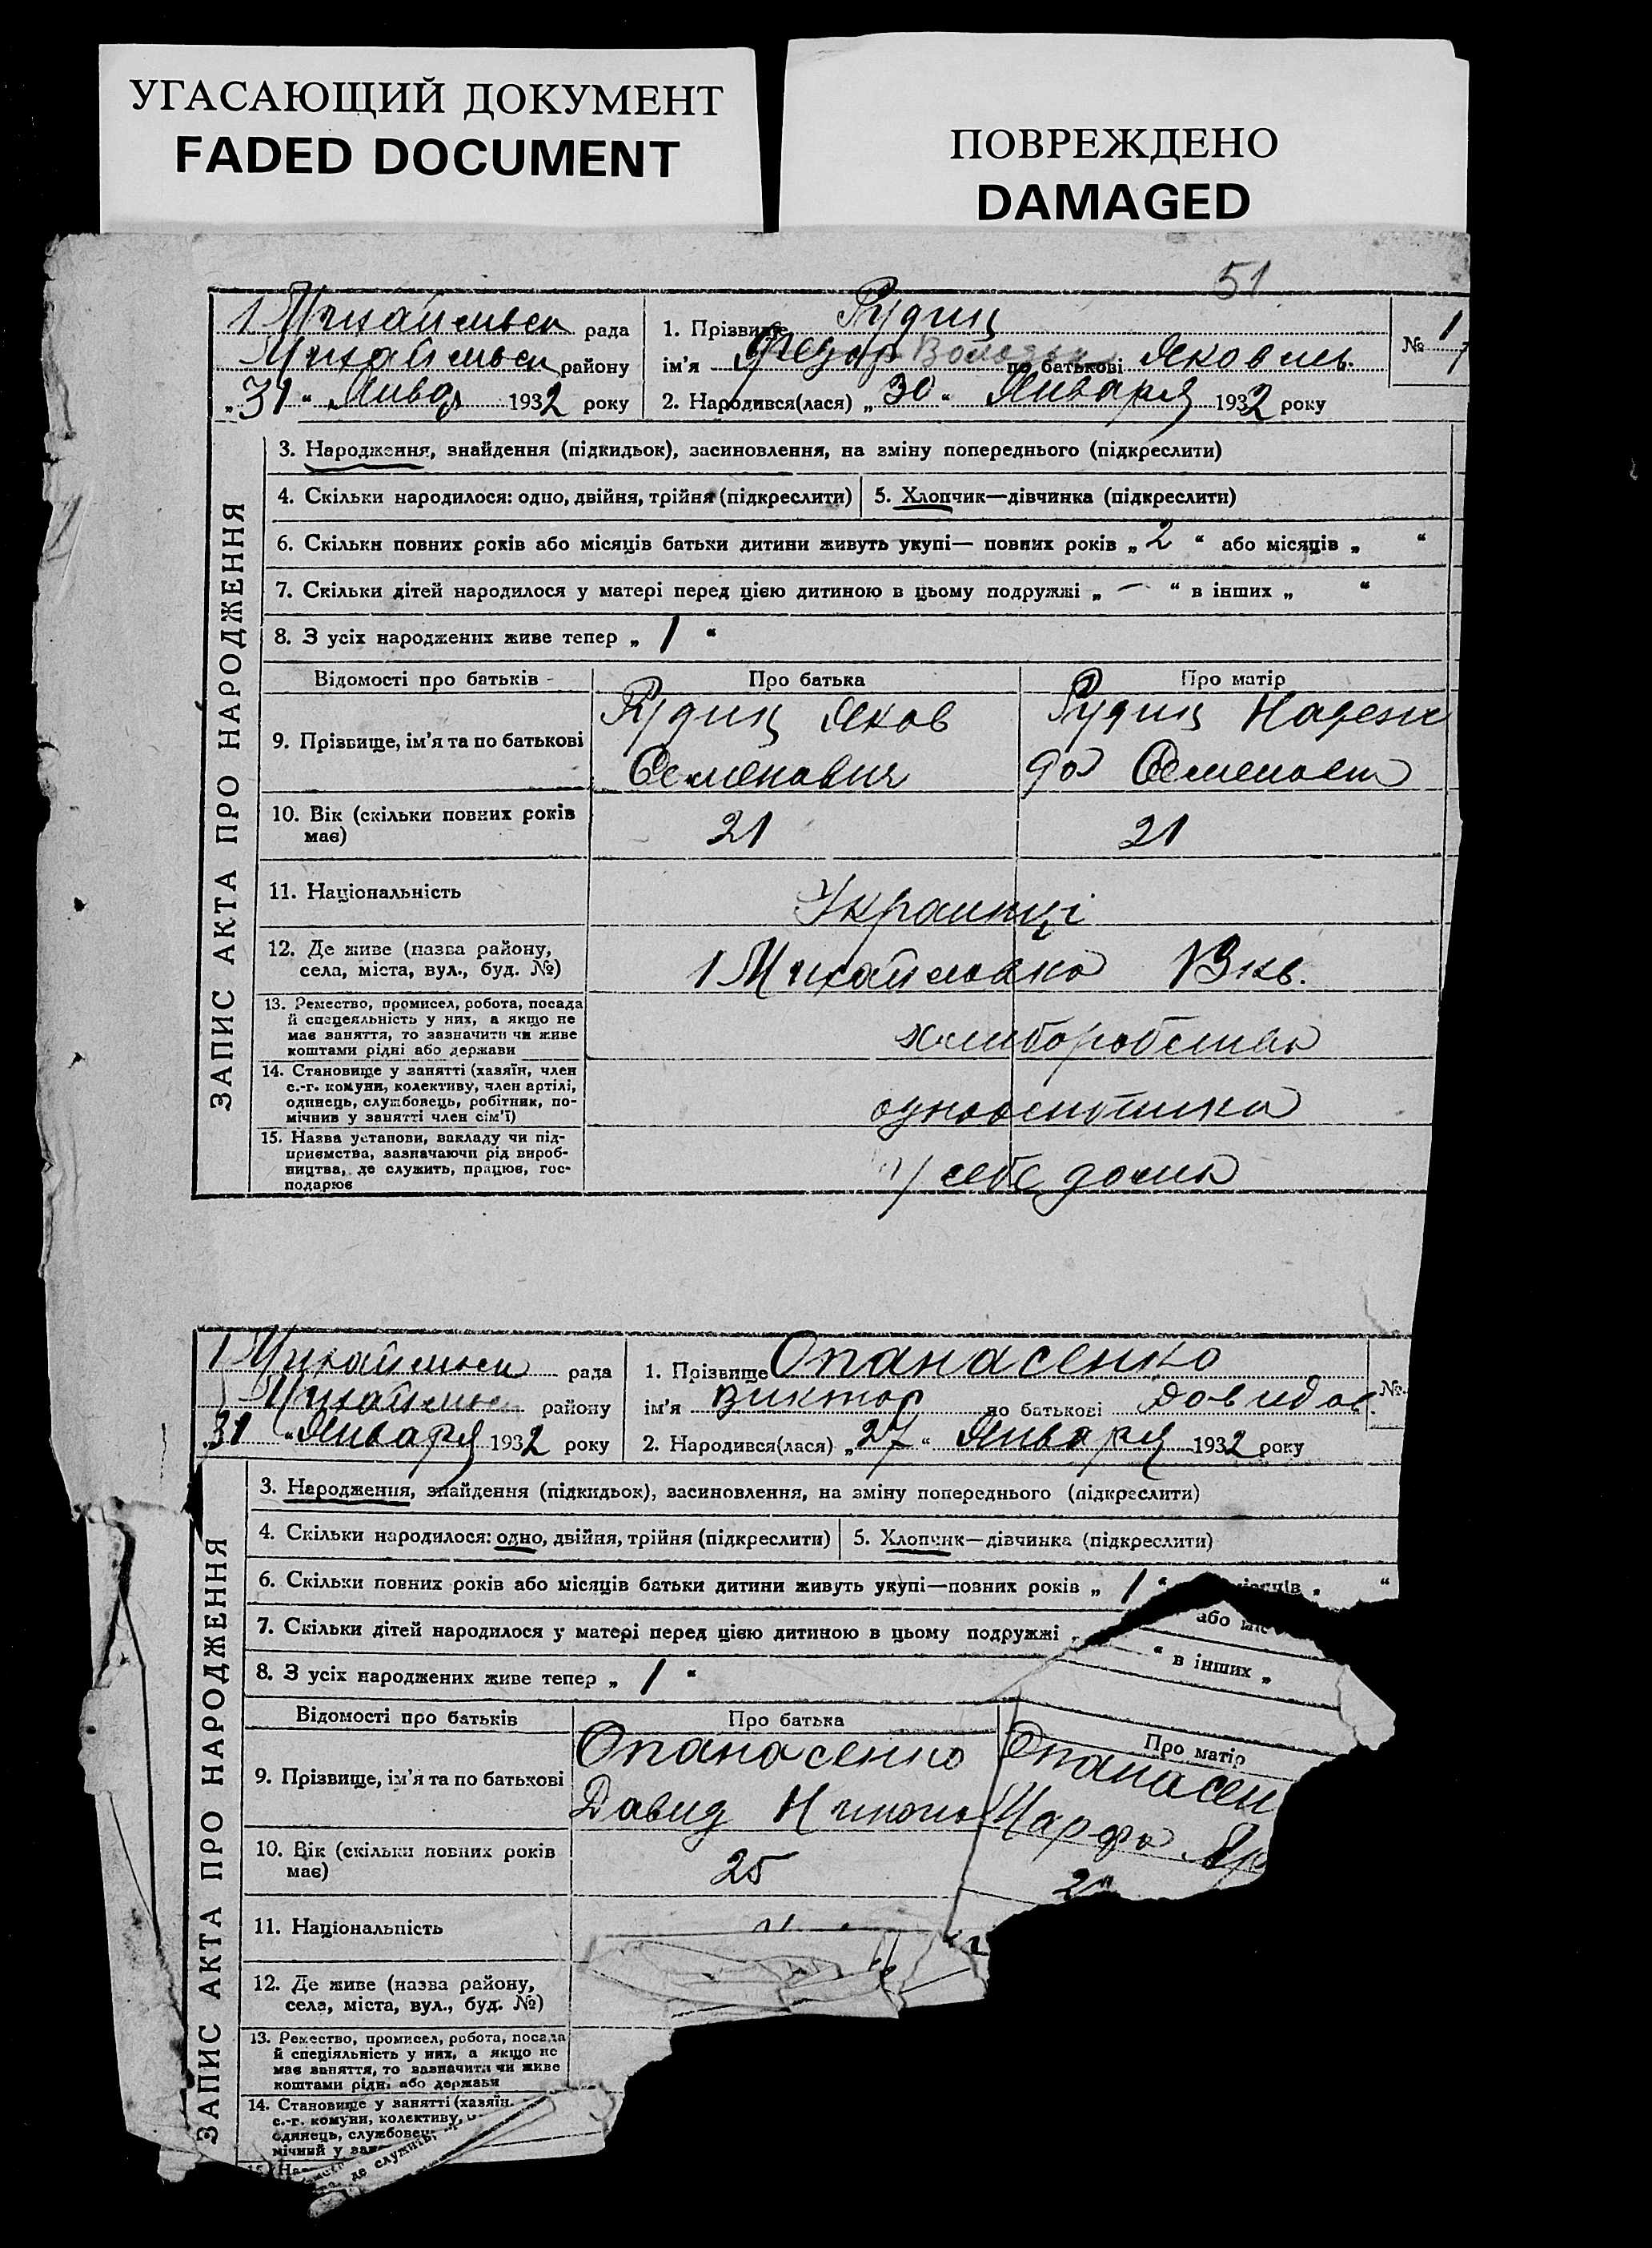 УГАСАЮЩИЙ ДОКУМЕНТ
FADED DOCUMENT
ПОВРЕЖДЕНО
DAMAGED
51
1 Михайлвськ рада
Михайлвськ району
„31“ Январ 1932 року
1. Прізвище Рудиц
ім'я Федор по батькові Яковлев.
2. Народився(лася) „30“ Января 1932 року
№ 1
ЗАПИС АКТА ПРО НАРОДЖЕННЯ
3. Народження, знайдення (підкидьок), засиновлення, на зміну попереднього (підкреслити)
4. Скільки народилося: одно, двійня, трійня (підкреслити) 5. Хлопчик—дівчинка (підкреслити)
6. Скільки повних років або місяців батьки дитини живуть укупі— повних років „2“ або місяців „ “
7. Скільки дітей народилося у матері перед цією дитиною в цьому подружжі „ — “ в інших „ “
8. З усіх народжених живе тепер „ 1 “
Відомості про батьків - Про батька Про матір
9. Прізвище, ім'я та по батькові
Рудиц Яков
Семенович
Рудиц Надеж
да Семеновн
10. Вік (скільки повних років
має)
21 21
11. Національність
Украинці
12. Де живе (назва району,
села, міста, вул., буд. №)
1 Михайловка
13. Ремество, промисел, робота, посада
й спецеяльність у них, а якщо не
має заняття, то зазначити чи живе
коштами рідні або держави
14. Становище у занятті (хазяїн, член
с.-г. комуни, колективу, член артілі,
одинець, службовець, робітник, по-
мічнив у занятті член сім'ї)
15. Назва установи, закладу чи під-
приємства, зазначаючи рід вироб-
ництва, де служить, працює, гос-
подарює
у себе дома
1 Михайлвськ рада
Михайлвськ району
31 “ Января 1932 року
1. Прізвище Опанасенко
ім'я Виктор по батькові Довидов
2. Народився(лася) „27“ Января 1932 року
№
ЗАПИС АКТА ПРО НАРОДЖЕННЯ
3. Народження, знайдення (підкидьок), засиновлення, на зміну попереднього (підкреслити)
4. Скільки народилося: одно, двійня, трійня (підкреслити) 5. Хлопчик—дівчинка (підкреслити)
6. Скільки повних років або місяців батьки дитини живуть укупі—повних років „ 1 “
або міс
7. Скільки дітей народилося у матері перед цією дитиною в цьому подружжі „ “ в інших „
8. З усіх народжених живе тепер „ 1 “
Відомості про батьків Про батька Про матір
9. Прізвище, ім'я та по батькові
Опанасенко
Давид
Опанасен
Марфа
10. Вік (скільки повних років
має)
25
11. Національність
12. Де живе (назва району,
села, міста, вул., буд. №)
13. Ремество, промисел, робота, посада
й спеціяльність у них, а якщо не
має заняття, то зазначити чи живе
коштами рідні або держави
14. Становище у занятті (хазяїн,
с.-г. комуни, колективу,
одинець, службовець
мічний у зан
де служить,